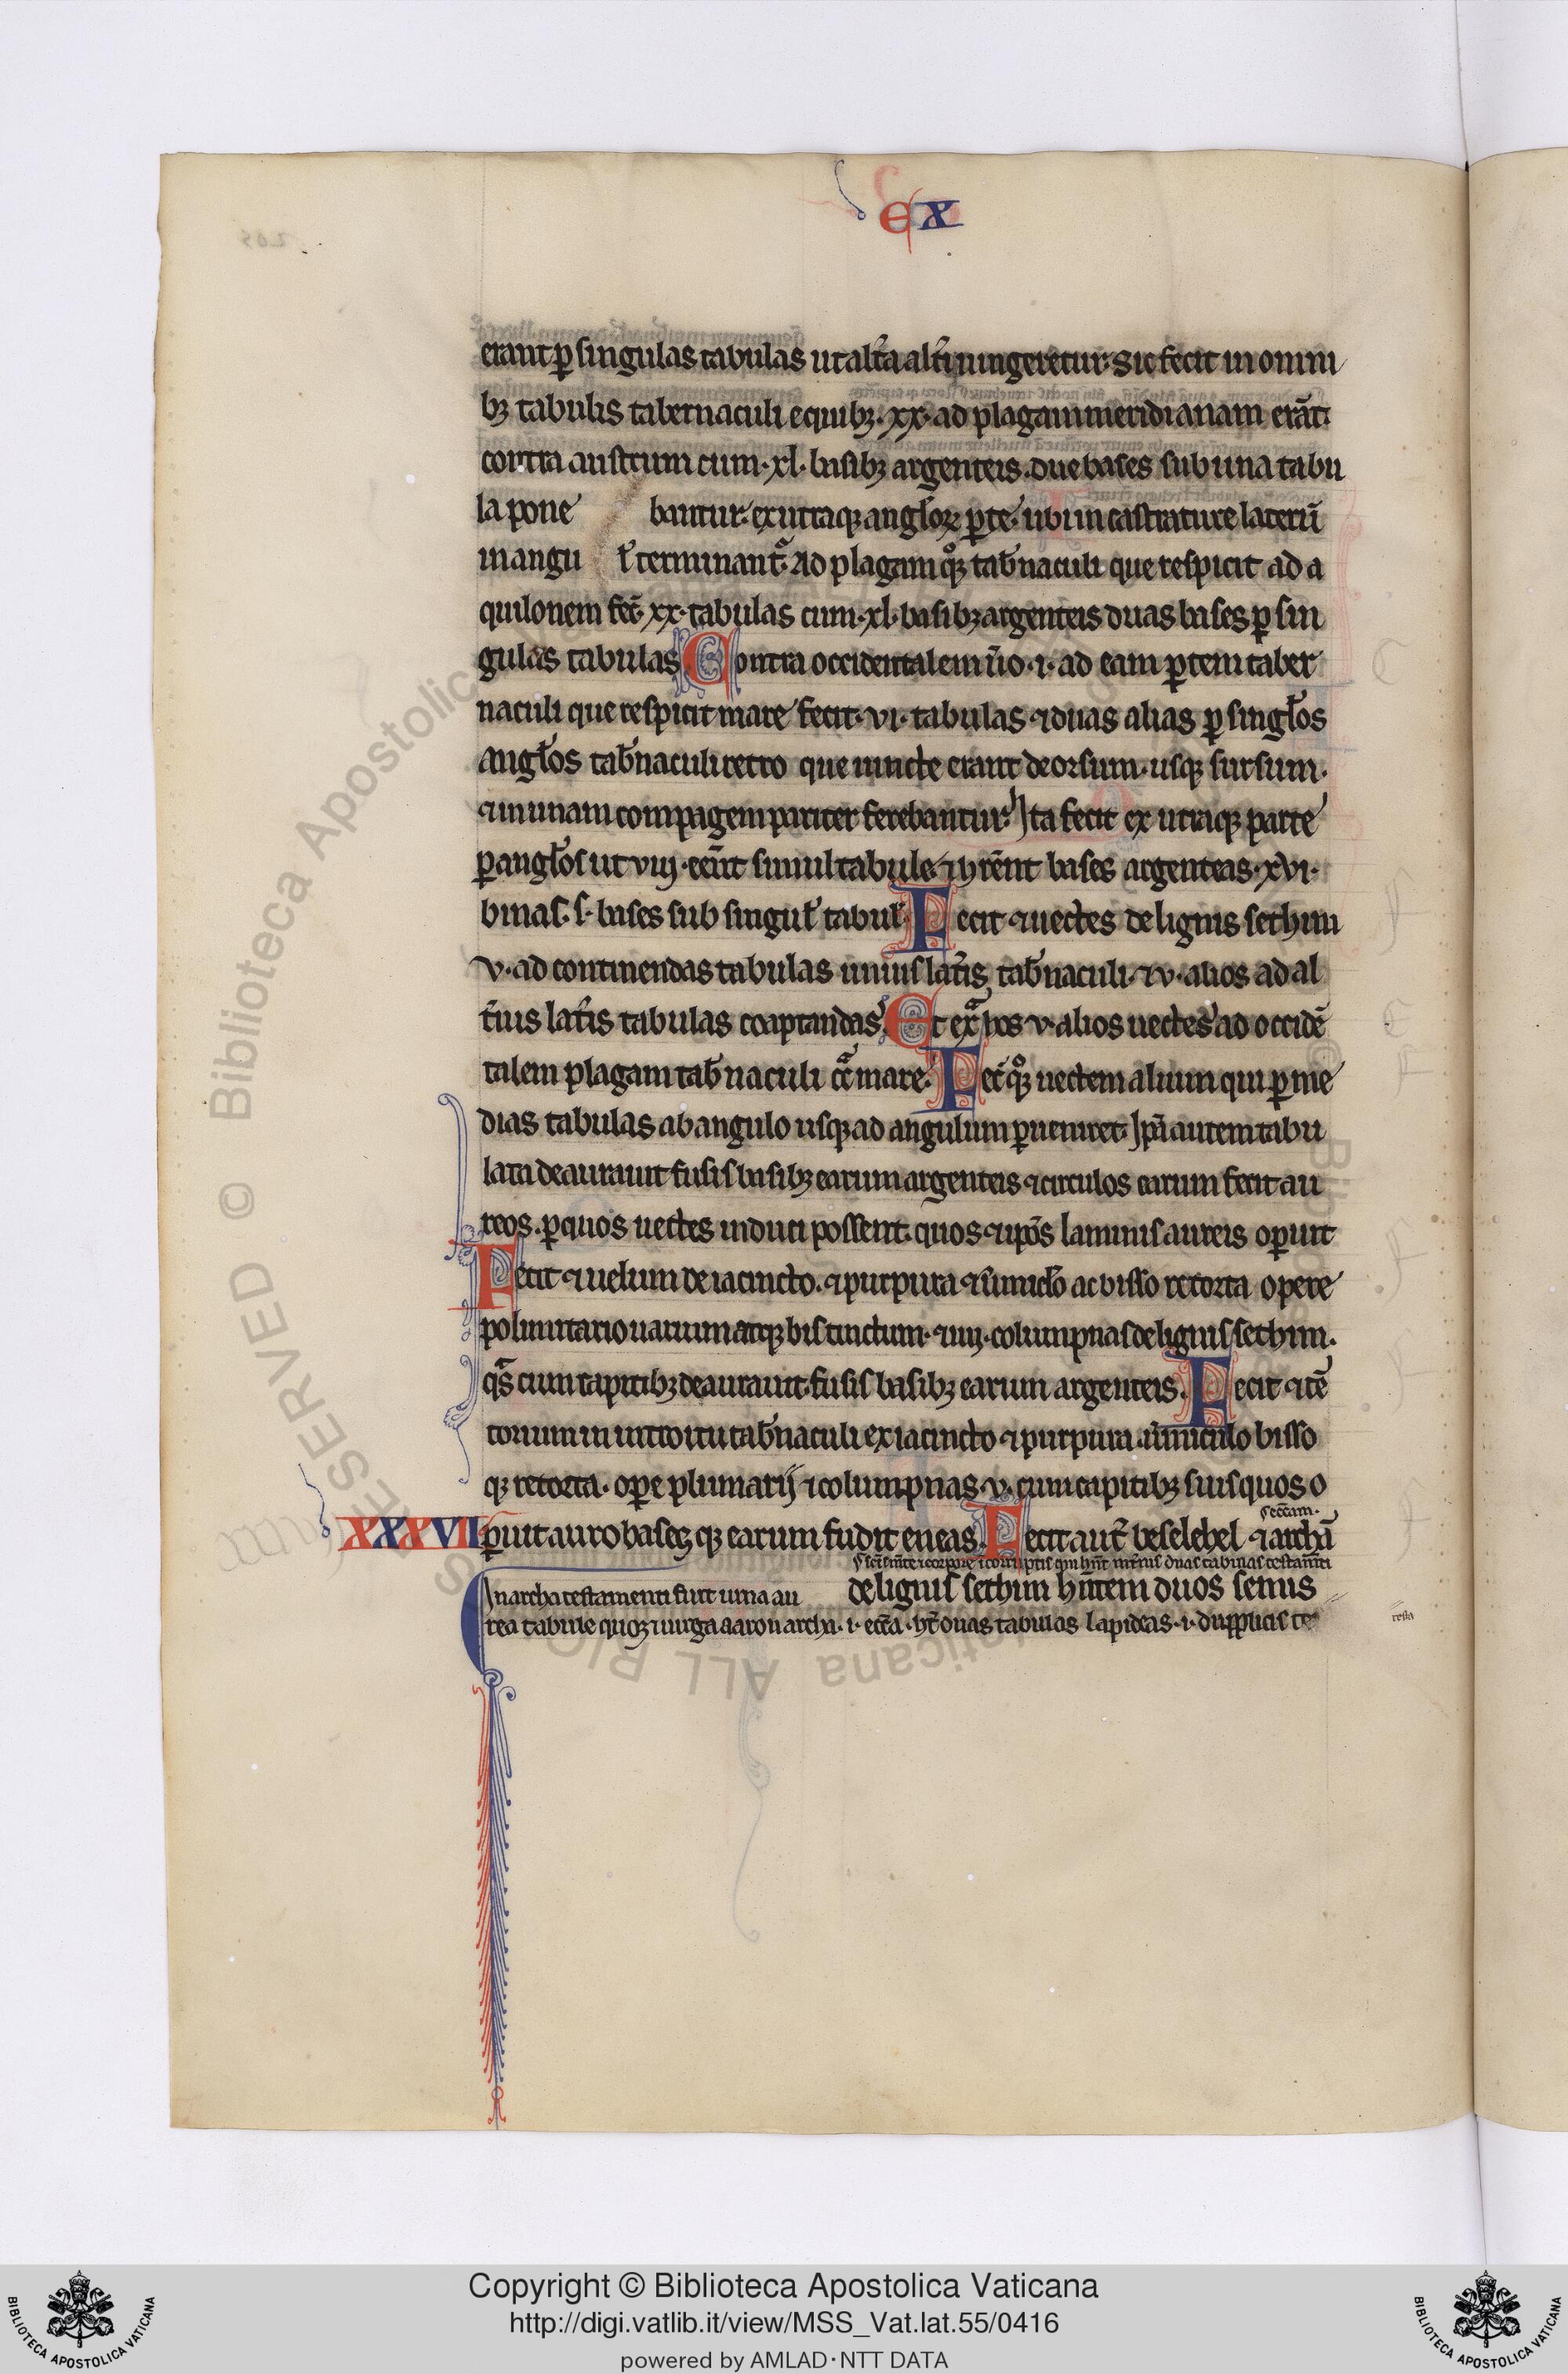 EX
erant ꝑ singulas tabulas ut alt̾a alt̾i iungeretur. Sic fecit in omni
bꝫ tabulis tabernaculi e quibꝫ .xx. ad plagam meridianam erāt.
contra austrum cum .xl. basibꝫ argenteis. due bases sub una tabu
la pone bantur. ex utraqꝫ angl̾oꝝ ꝑte. ubi incastrature laterū
in angu l̾ terminant᷑. Ad plagam qͦꝫ tab̾naculi que respicit ad a
quilonem fec̄ .xx. tabulas cum .xl. basibꝫ argenteis duas bases ꝑ sin
gulas tabulas. Contra occidentalem ū̾o .i. ad eam ꝑtem taber
naculi que respicit mare fecit .vi. tabulas ⁊ duas alias ꝑ singl̾os
angl̾os tab̾naculi retro que iuncte erant deorsum usqꝫ sursum.
⁊ in unam compagem pariter ferebantur. Ita fecit ex utraqꝫ parte
ꝑ angl̾os ut viij. eēnt simul tabule ⁊ hr̄ent bases argenteas .xvi.
binas .s. bases sub singul̾ tabul̾. Fecit ⁊ uectes de lignis sethim
.v. ad continendas tabulas unius lat̾is tab̾naculi. ⁊ v. alios ad al
t̾ius lat̾is tabulas coaptandas. Et exᵃ hos v. alios uectes ad occidē
talem plagam tab̾naculi c̄ᵃ mare. Fec̄ qͦꝫ uectem alium qui ꝑ me
dias tabulas ab angulo usqꝫ ad angulum ꝑueniret. Ip̄a autem tabu
lata deaurauit fusis basibꝫ earum argenteis ⁊ circulos earum fecit au
reos. ꝑ quos uectes induci possent. quos ⁊ ip̄os laminis aureis oꝑuit
Fecit ⁊ uelum de iacincto. ⁊ purpura ⁊ ū̾miclo ac bisso retorta opere
polimitario uarium atqꝫ distinctum. ⁊ iiij. columpnas de lignis sethim.
qᵃs cum capitibꝫ deaurauit. fusis basibꝫ earum argenteis. Fecit ⁊ tē
torium in introitu tab̾naculi ex iacincto ⁊ purpura ū̾miculo bisso
qꝫ retorta. oꝑe plumarij ⁊ columpnas .v. cum capitibꝫ suis quos o
XXXVII ꝑuit auro baseqꝫ earum fudit eneas. Fecit aut̄ beselehel ⁊ archā
de lignis sethim hn̄tem duos semis
In archa testamenti fuit urna au
rea tabule quoqꝫ ⁊ uirga aaron archa .i. ecc̄a. hēt duas tabulas lapideas .i. dupplicis te
Copyright © Biblioteca Apostolica Vaticana
http://digi.vatlib.it/view/MSS_Vat.lat.55/0416
powered by AMLAD·NTT DATA
BIBLIOTECA APOSTOLICA VATICANA
BIBLIOTECA APOSTOLICA VATICANA